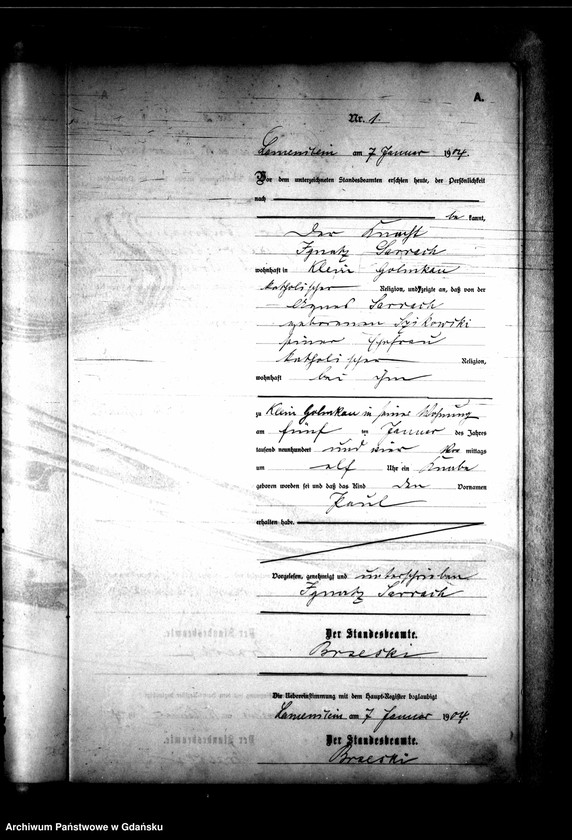 A.
Nr. 1.
Lamenstein am 7 Januar 1904.
Vor dem unterzeichneten Standesbeamten erschien heute, der Persönlichkeit
nach
be kannt,
der Knecht
Ignatz Sarrach
wohnhaft in Klein Golmkau
katholischer Religion, und zeigte an, daß von der
Agnes Sarrach
geborenen Szikowski
seiner Ehefrau
katholischer Religion,
wohnhaft bei ihm
zu Klein Golmkau in seiner Wohnung
am fünf ten Januar des Jahres
tausend neunhundert und vier Vor mittags
um elf Uhr ein Knabe
geboren worden sei und daß das Kind den Vornamen
Paul
erhalten habe.
Vorgelesen, genehmigt und unterschrieben
Ignatz Sarrach
Der Standesbeamte.
Brzeski
Die Uebereinstimmung mit dem Haupt-Register beglaubigt
Lamenstein am 7 Januar 1904.
Der Standesbeamte.
Brzeski
Archiwum Państwowe w Gdańsku